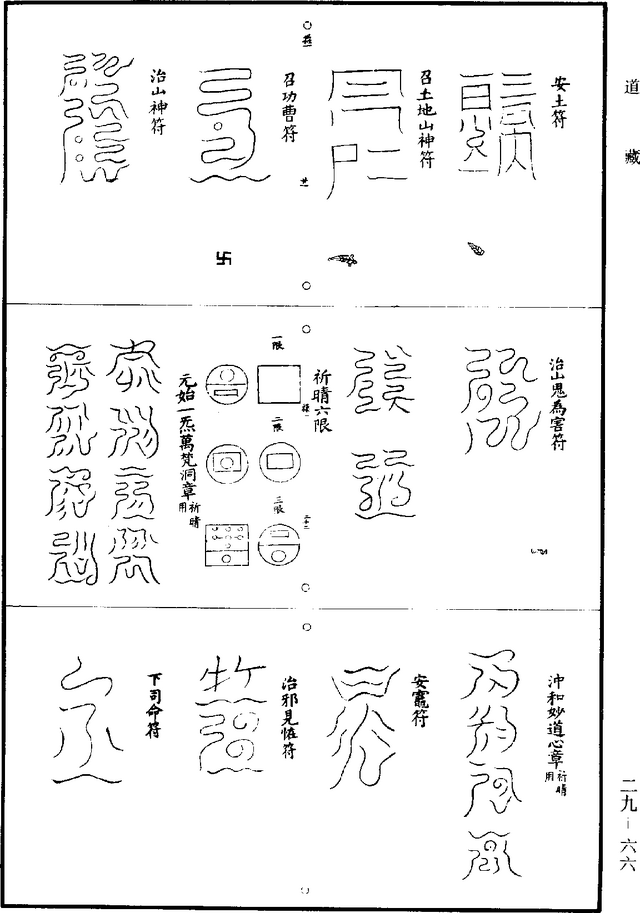 道藏
安土符
召土地山神符
召功曹符
治山神符
治山鬼為害符
祈晴六限
一限
二限
三限
元始一炁萬梵洞章祈晴用
沖和妙道心章祈晴用
安竈符
治邪見怪符
下司命符
二九—六六